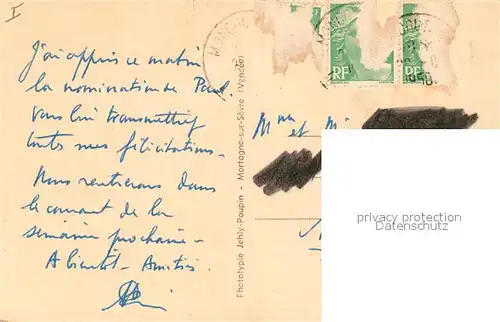 I
J'ai appris ce matin
la nomination de Paul.
vous lui transmettrez
toutes mes félicitations -
Nous rentrerons dans
le courant de la
semaine prochaine -
A bientôt - Amitiés
Phototypie Jehly-Poupin - Mortagne-sur-Sèvre (Vendée)
RF
RF
Mme et Mr
privacy protection
Datenschutz